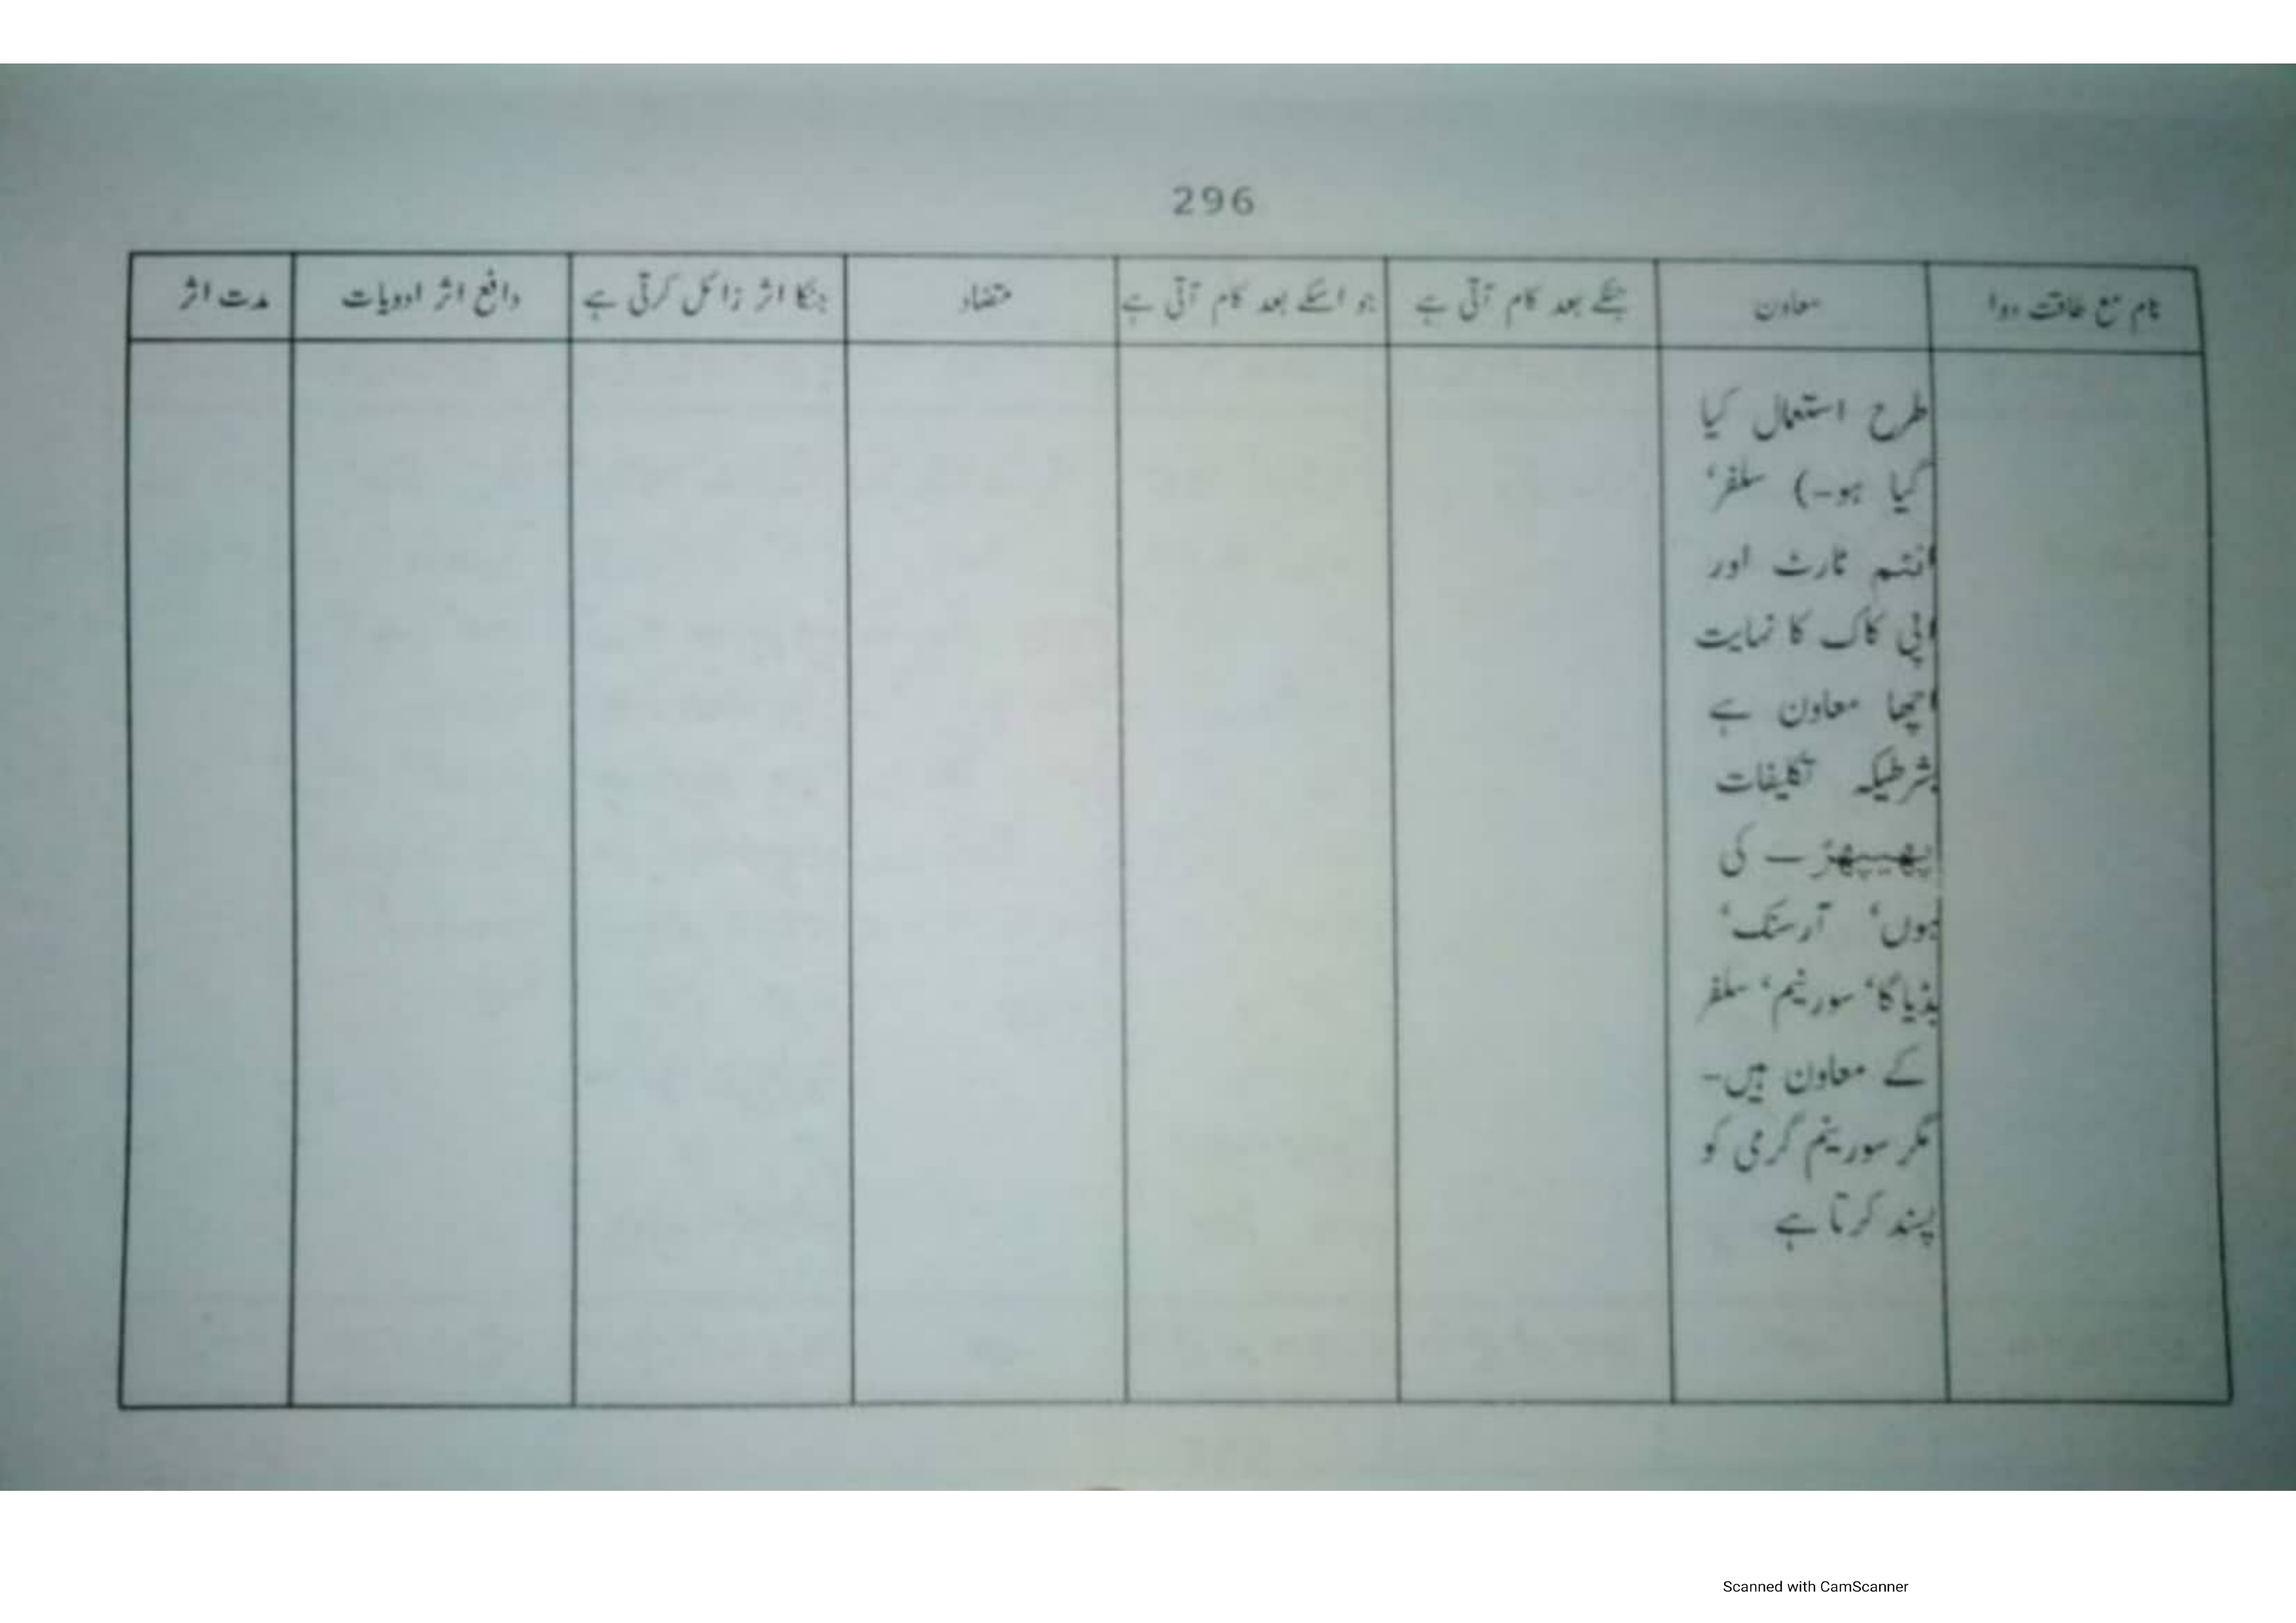 296
نام مع طاقت دوا
معاون
جسکے بعد کام آتی ہے
جو اسکے بعد کام آتی ہے
متضاد
جنکا اثر زائل کرتی ہے
دافع اثر ادویات
مدت اثر
طرح استعمال کیا
گیا ہو۔) سلفر،
انٹم ٹارٹ اور
اپی کاک کا نہایت
اچھا معاون ہے
بشرطیکہ تکلیفات
پھیپھڑے کی
ہوں، آرسنک،
بڈیاگا، سورینم، سلفر
کے معاون ہیں۔
مگر سورینم گرمی کو
پسند کرتا ہے
Scanned with CamScanner